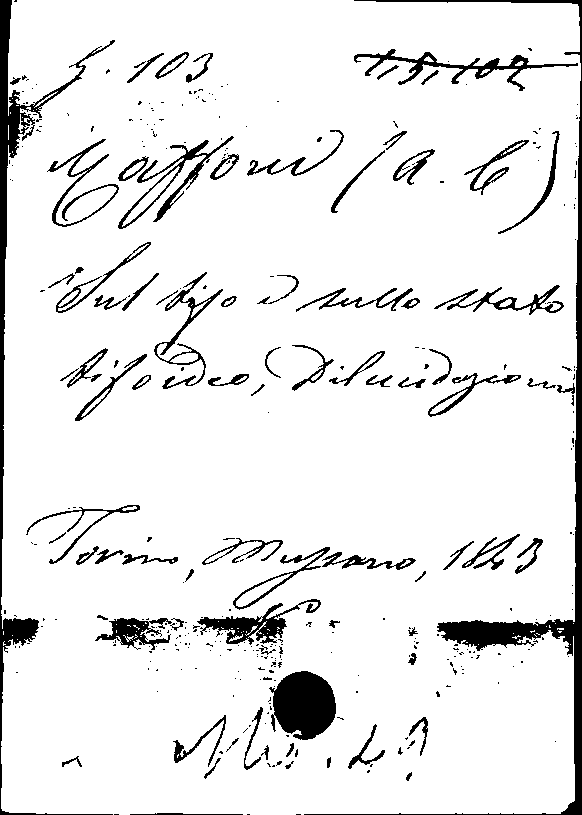 G. 103
Maffoni (A. C)
Sul tifo e sullo stato
tifoideo, Dilucidazioni
Torino, Mussano, 1843